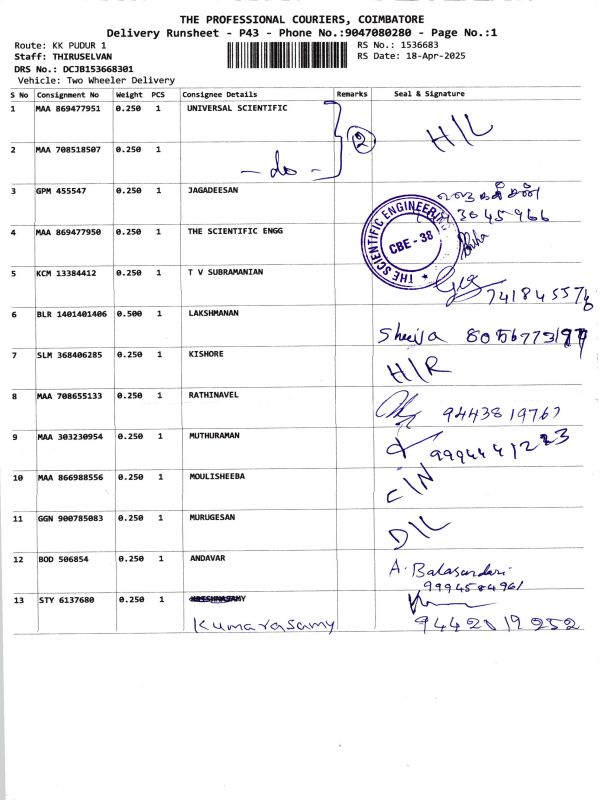 THE PROFESSIONAL COURIERS, COIMBATORE
Delivery Runsheet - P43 - Phone No.:9047080280 - Page No.:1
Route: KK PUDUR 1 RS No.: 1536683
Staff: THIRUSELVAN RS Date: 18-Apr-2025
DRS No.: DCJB153668301
Vehicle: Two Wheeler Delivery
S No Consignment No Weight PCS Consignee Details Remarks Seal & Signature
1 MAA 869477951 0.250 1 UNIVERSAL SCIENTIFIC
2 H/L
2 MAA 708518507 0.250 1
- do -
3 GPM 455547 0.250 1 JAGADEESAN
3045966
4 MAA 869477950 0.250 1 THE SCIENTIFIC ENGG
THE SCIENTIFIC ENGINEERING CBE - 38
5 KCM 13384412 0.250 1 T V SUBRAMANIAN
6 BLR 1401401406 0.500 1 LAKSHMANAN
7 SLM 368406285 0.250 1 KISHORE H/R
8 MAA 708655133 0.250 1 RATHINAVEL
9443819767
9 MAA 303230954 0.250 1 MUTHURAMAN
9994441223
10 MAA 866988556 0.250 1 MOULISHEEBA C/N
11 GGN 900785083 0.250 1 MURUGESAN D/L
12 BOD 506854 0.250 1 ANDAVAR A. Balasundari
9994584961
13 STY 6137680 0.250 1
Kumarasamy 9442019252